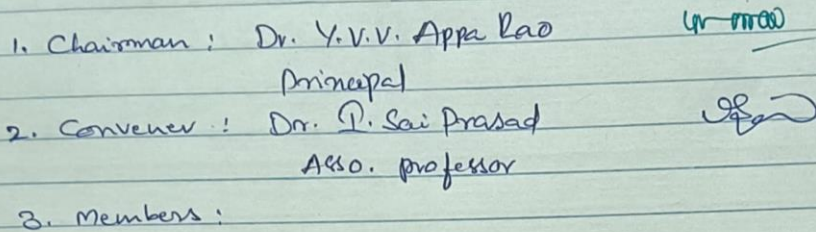 1. Chairman : Dr. Y.V.V. Appa Rao
Principal
2. Convener : Dr. P. Sai Prasad
Asso. professor
3. Members :